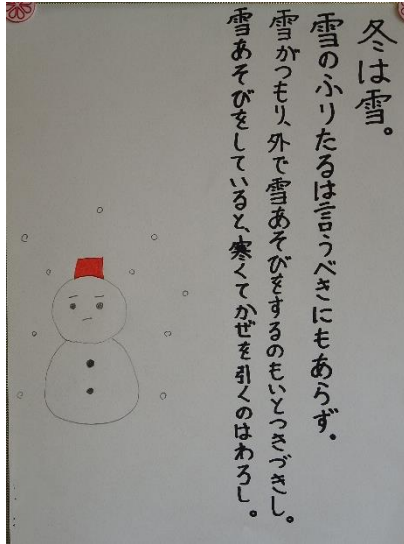 冬は雪。
雪のふりたるは言うべきにもあらず。
雪がつもり、外で雪あそびをするのもいとつきづきし。
雪あそびをしていると、寒くてかぜを引くのはわろし。